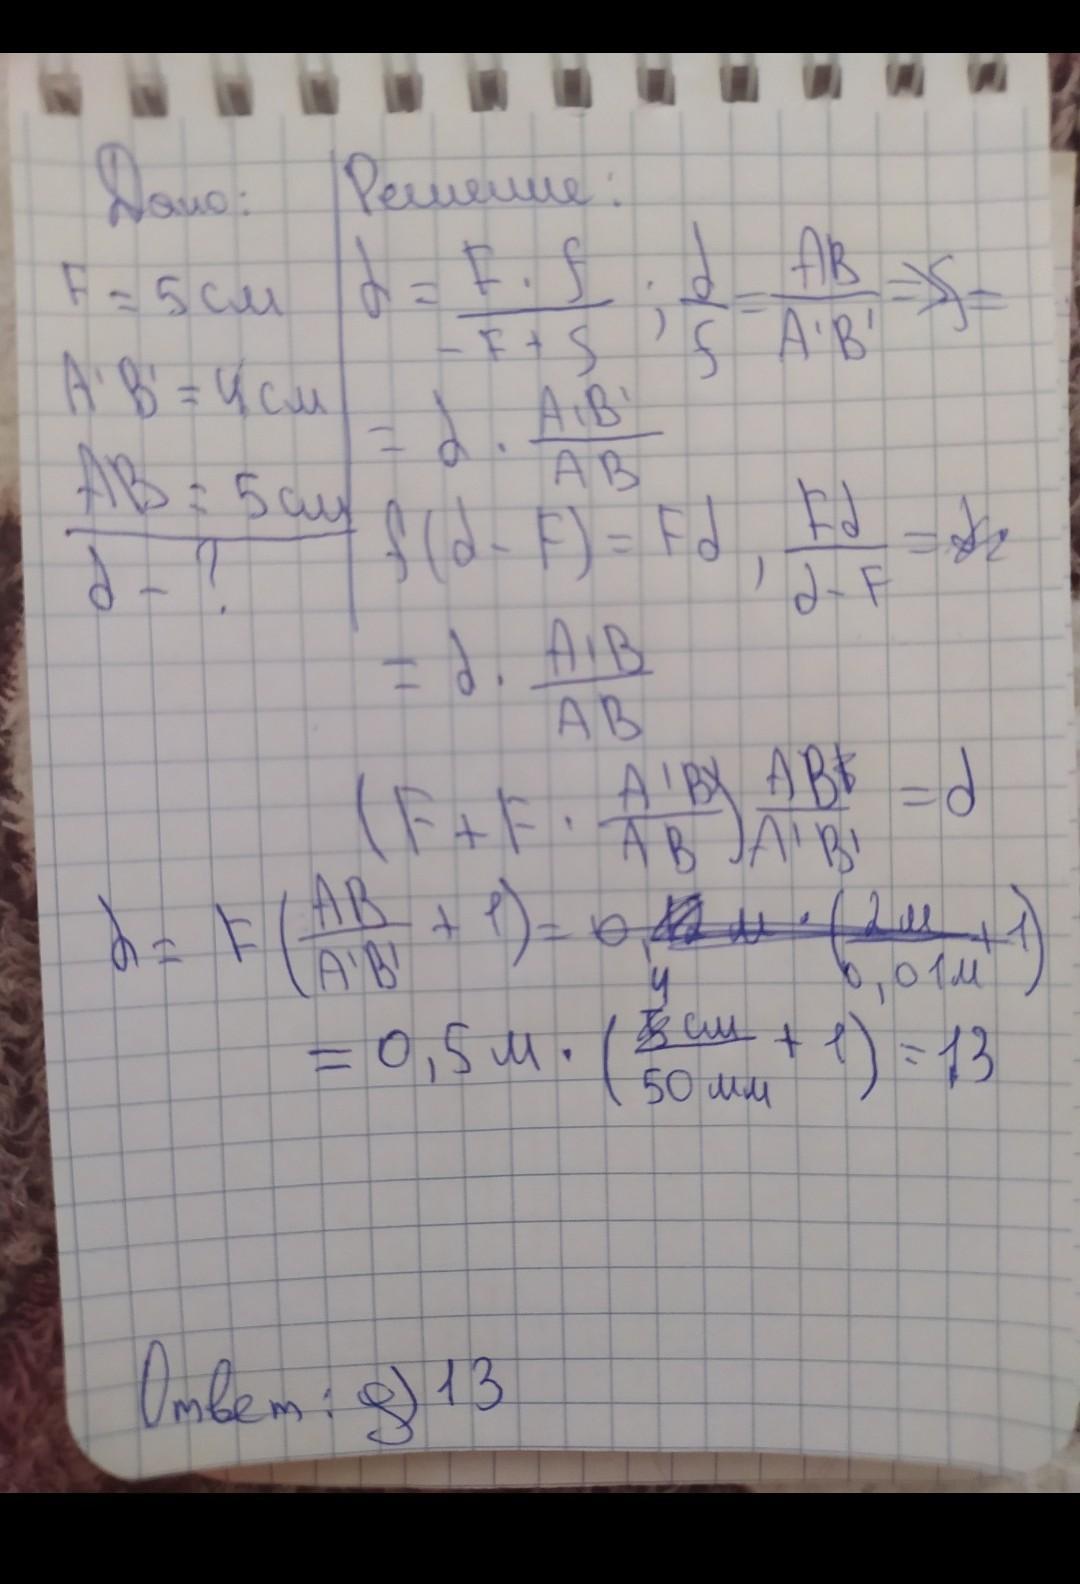 Дано:
F = 5 см
A'B' = 4 см
AB = 5 см
d - ?
Решение:
d = F · f / -F + f ; d / f = AB / A'B' => f =
= d · A'B' / AB
f (d - F) = Fd , Fd / d - F =
= d · A'B / AB
(F + F · A'B' / AB) AB / A'B' = d
d = F (AB / A'B' + 1) = 0, м · (2 м / 0,01 м + 1)
= 0,5 м · (4 см / 50 мм + 1) = 13
Ответ: д) 13